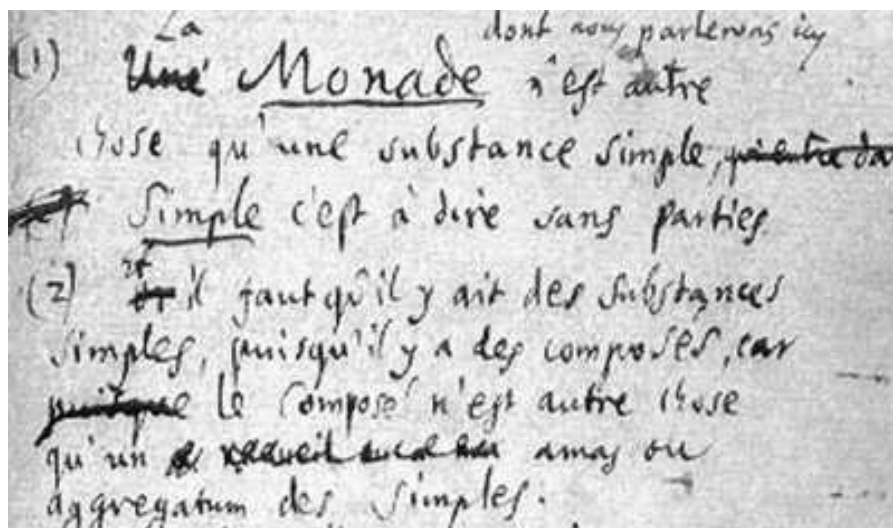 La dont nous parlerons icy
(1) Une Monade n'est autre
chose qu'une substance simple, qui entre da
Simple c'est à dire sans parties
(2) et il faut qu'il y ait des substances
simples, puisqu'il y a des composés, car
puisque le composé n'est autre chose
qu'un amas ou
aggregatum des simples.